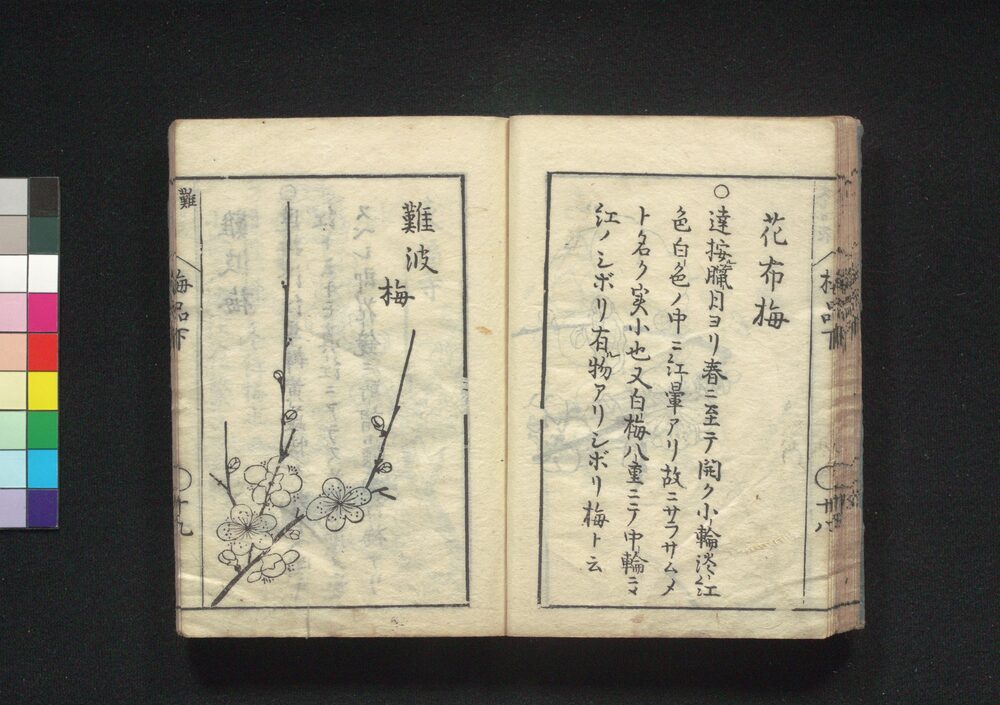 花布梅
○達按臘月ヨリ春ニ至テ開ク小輪淡紅
色白色ノ中ニ紅暈アリ故ニサラサムメ
ト名ク実小也又白梅八重ニテ中輪ニマ
紅ノシボリ有ル物アリシボリ梅ト云
梅品下
廿八
難波
梅
難
梅品下
十九